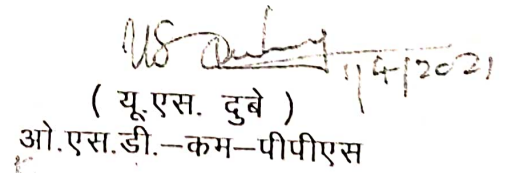 1/4/2021
( यू.एस. दुबे )
ओ.एस.डी.–कम–पीपीएस